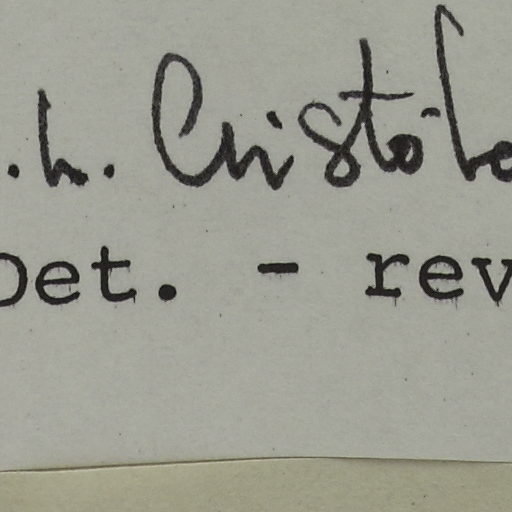 .h. Cristóbo
Det. - rev